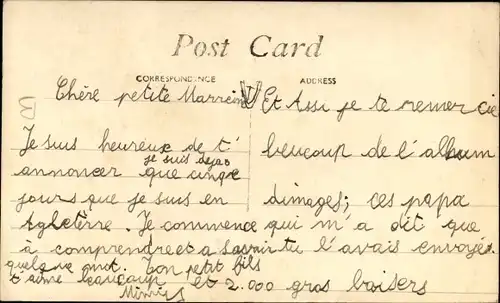 Post Card
CORRESPONDENCE
ADDRESS
Chère petite Marreine
Je suis heureux de t'
je suis dejas
annoncer que cinge
jours que je suis en
Agleterre. Je commence
à comprendre a savoir
quelque mot. Ton petit fils
t'aime beaucoup
Et Assi je te remercie
beucoup de l'album
dimages; ces papa
qui m'a dit que
tu l'avais envoyé.
et 2.000 gros baisers